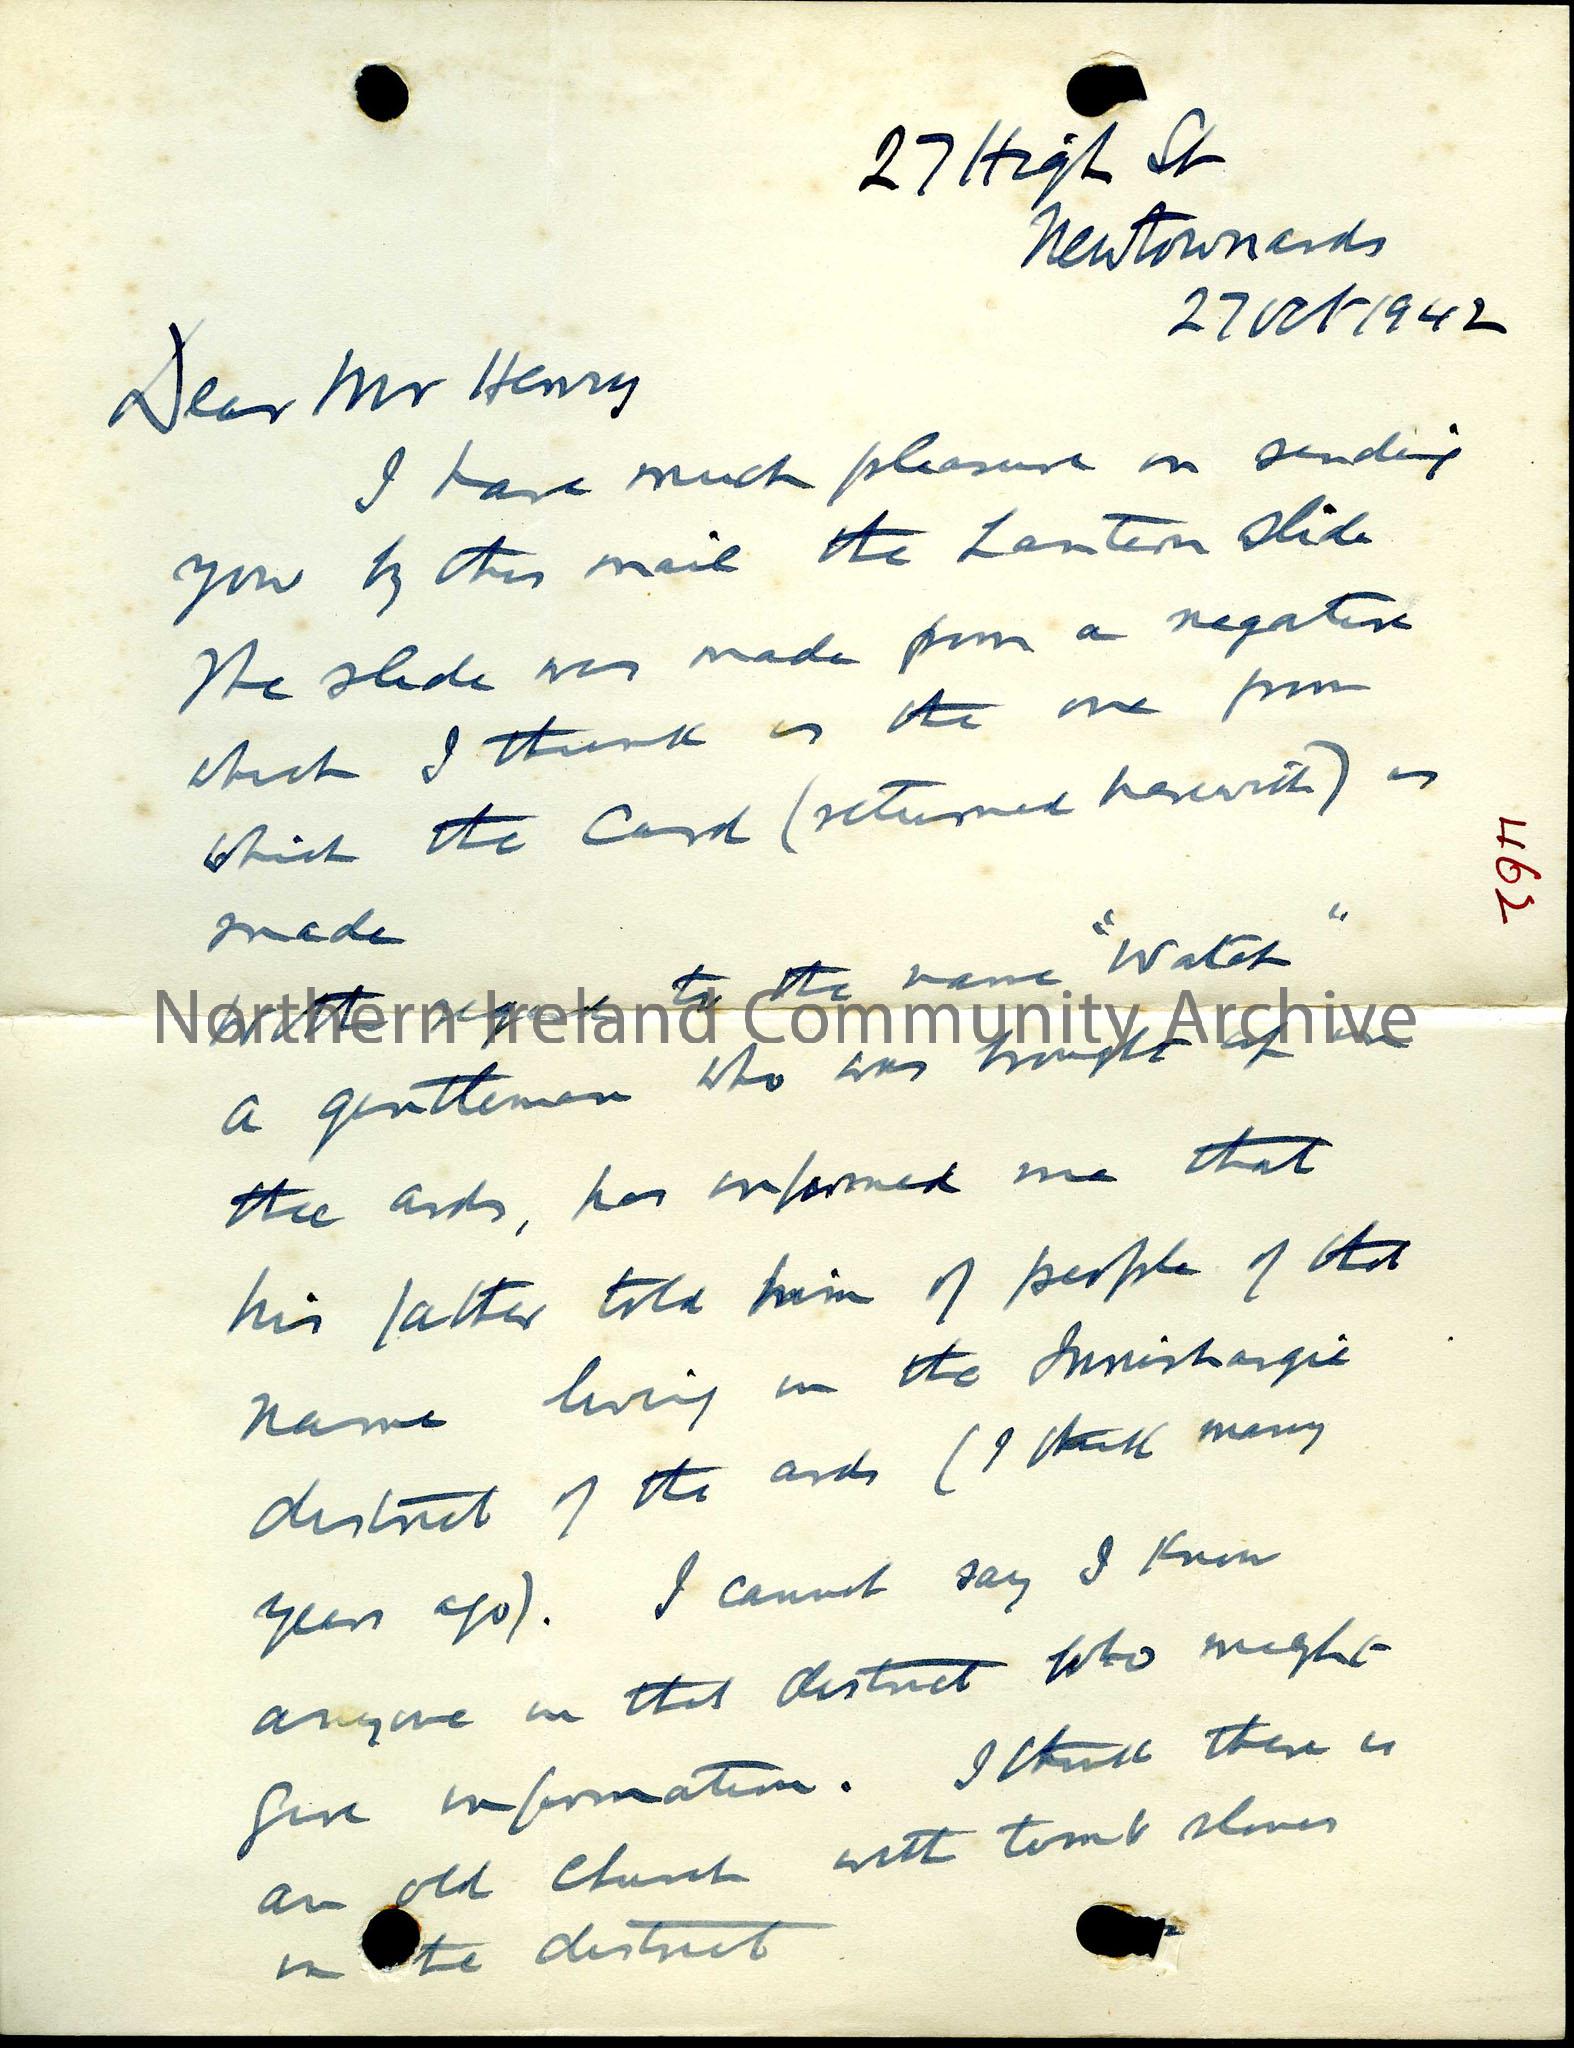 27 High St
Newtownards
27 Oct 1942
Dear Mr Henry
I have much pleasure in sending
you by this mail the Lantern Slide
The slide was made from a negative
which I think is the one from
which the Card (returned herewith) is
made
With regard to the name "Watch"
Northern Ireland Community Archive
a gentleman who was brought up in
the ards, has informed me that
his father told him of people of that
name living in the Innishargie
district of the ards (I think many
years ago). I cannot say I know
anyone in that district who might
give information. I think there is
an old Church with tomb stones
in the district
462